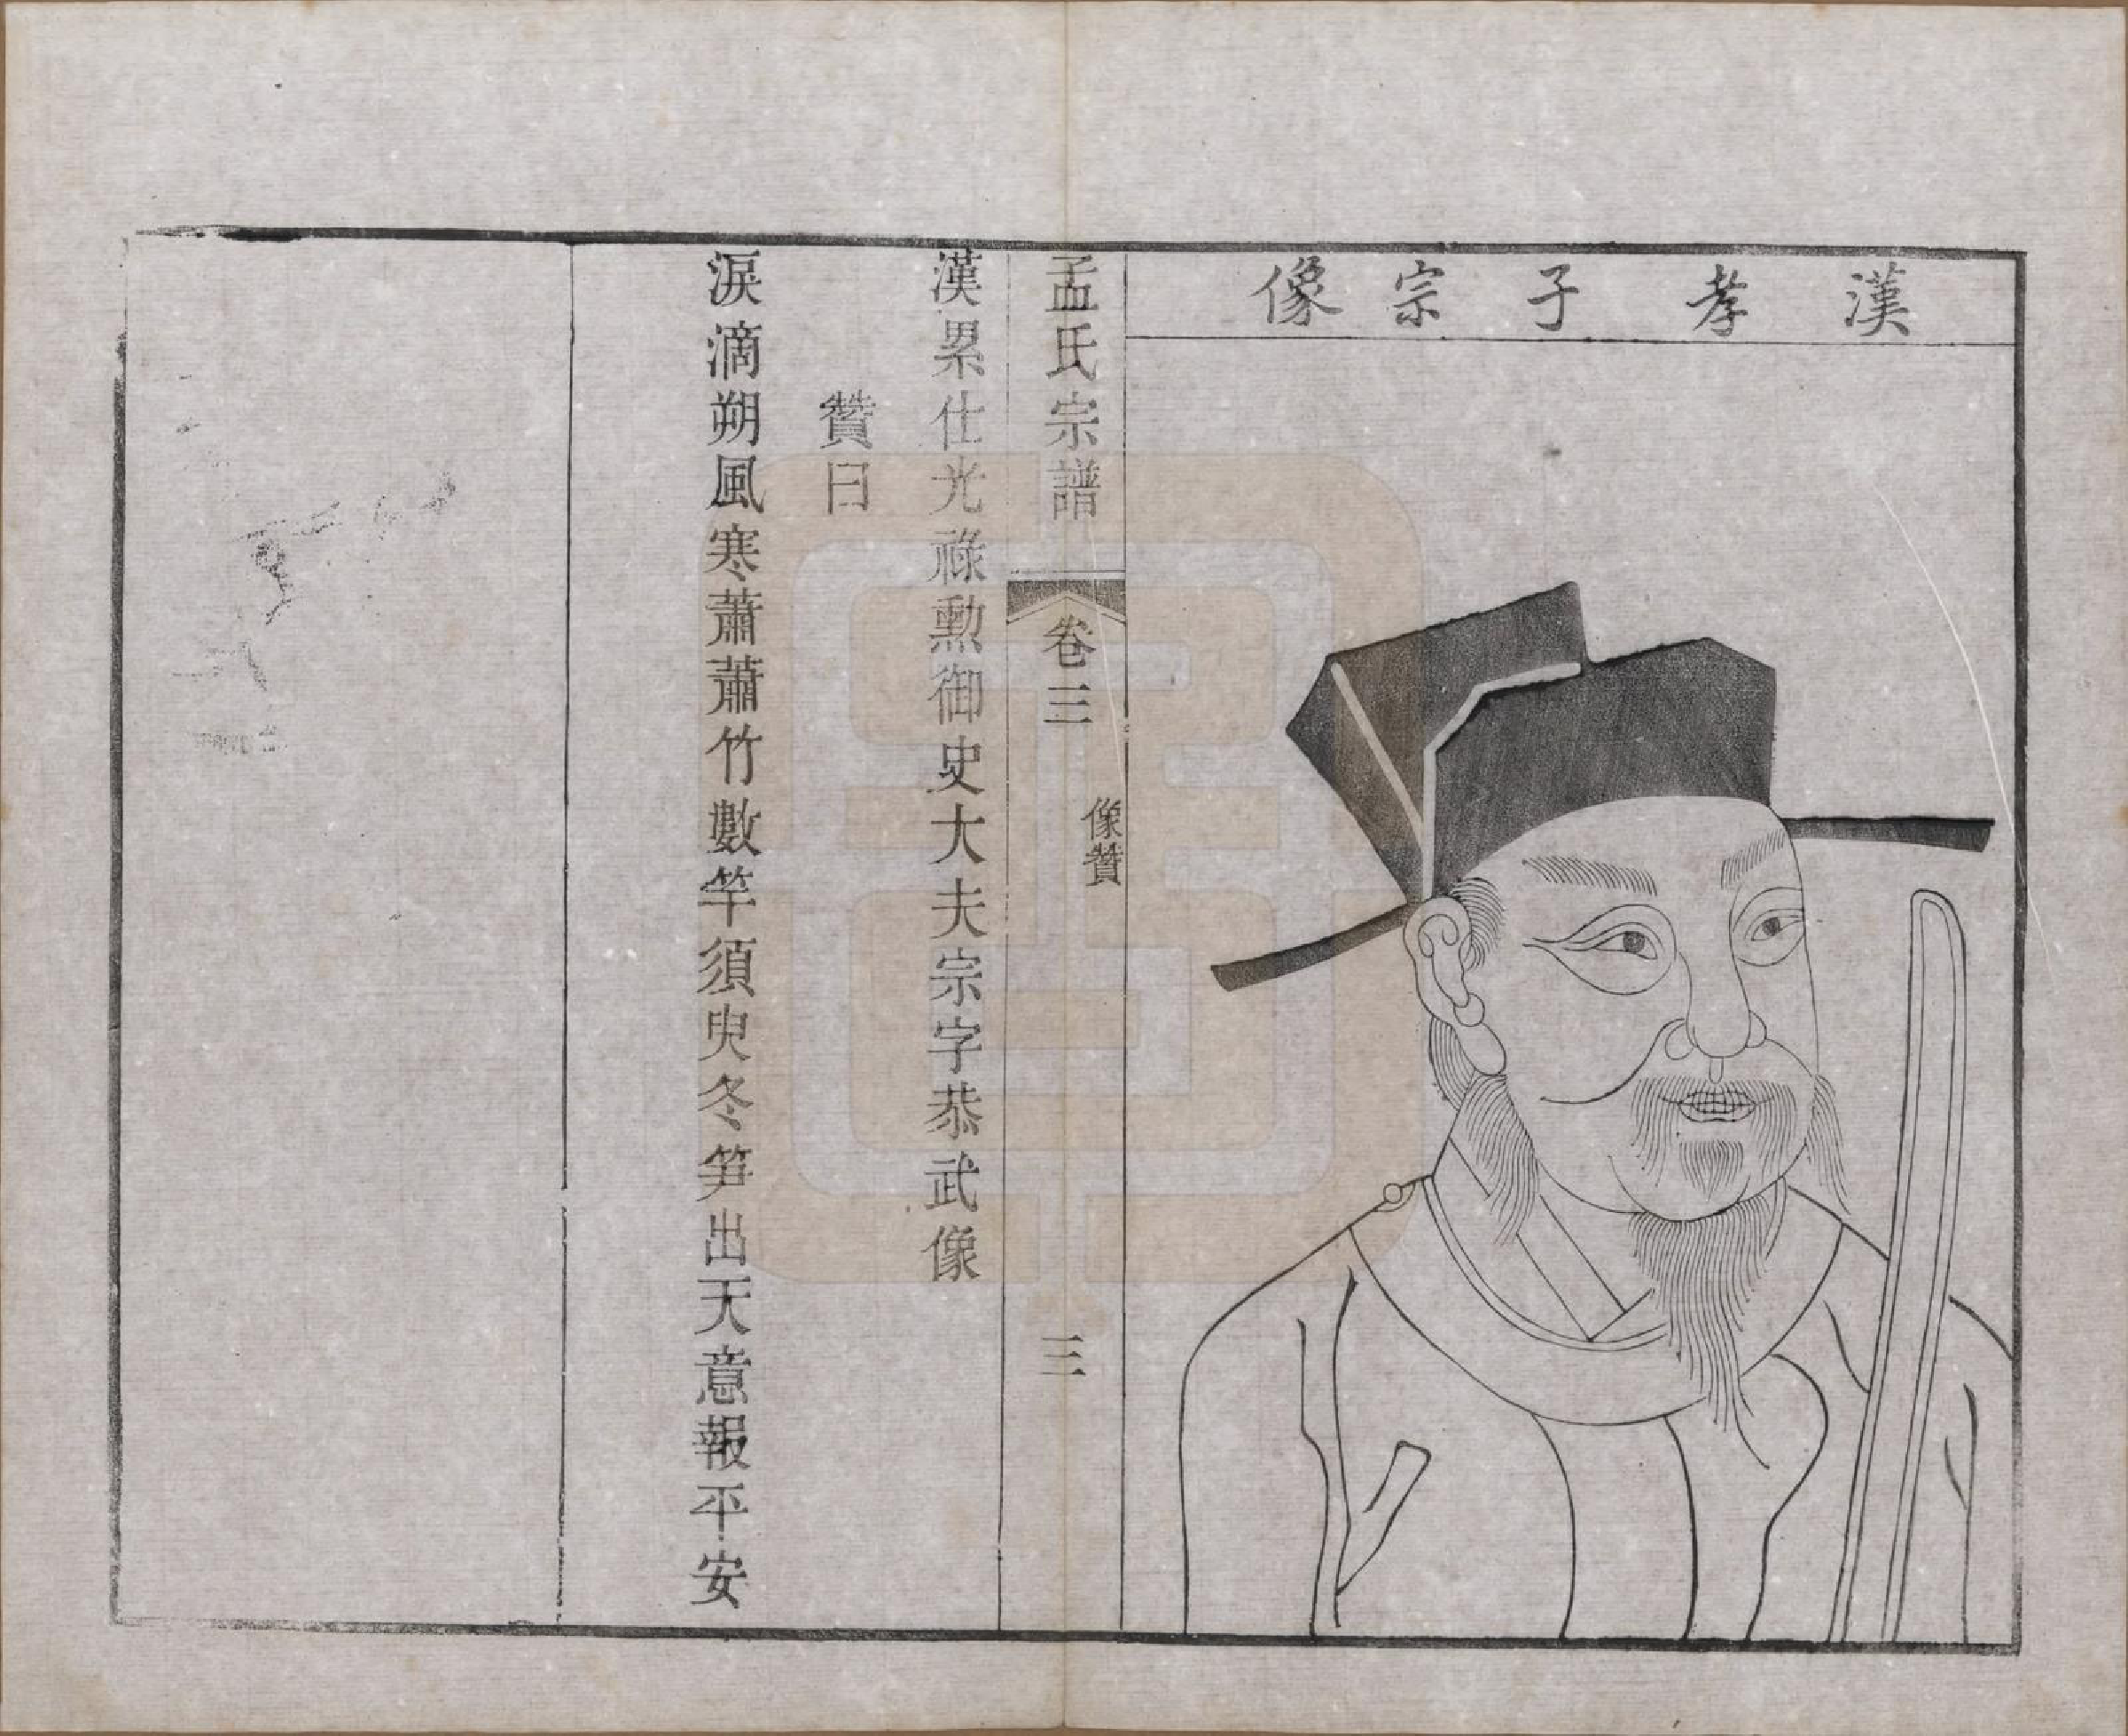 漢孝子宗像
孟氏宗譜
卷三
像贊
三
漢累仕光祿勳御史大夫宗字恭武像
贊曰
淚滴朔風寒蕭蕭竹數竿須臾冬笋出天意報平安